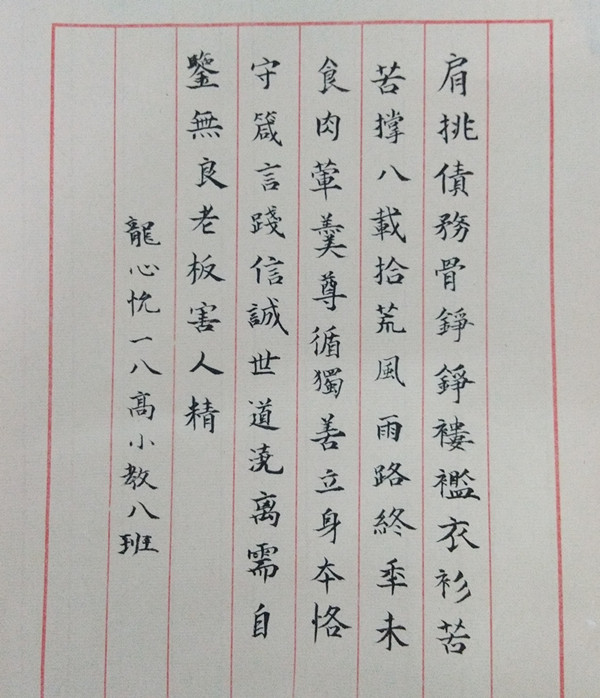 肩挑債務骨錚錚褸襤衣衫苦
苦撑八載拾荒風雨路終年未
食肉葷羹尊循獨善立身本恪
守箴言踐信誠世道澆离需自
鑒無良老板害人精
龍心悦一八高小教八班